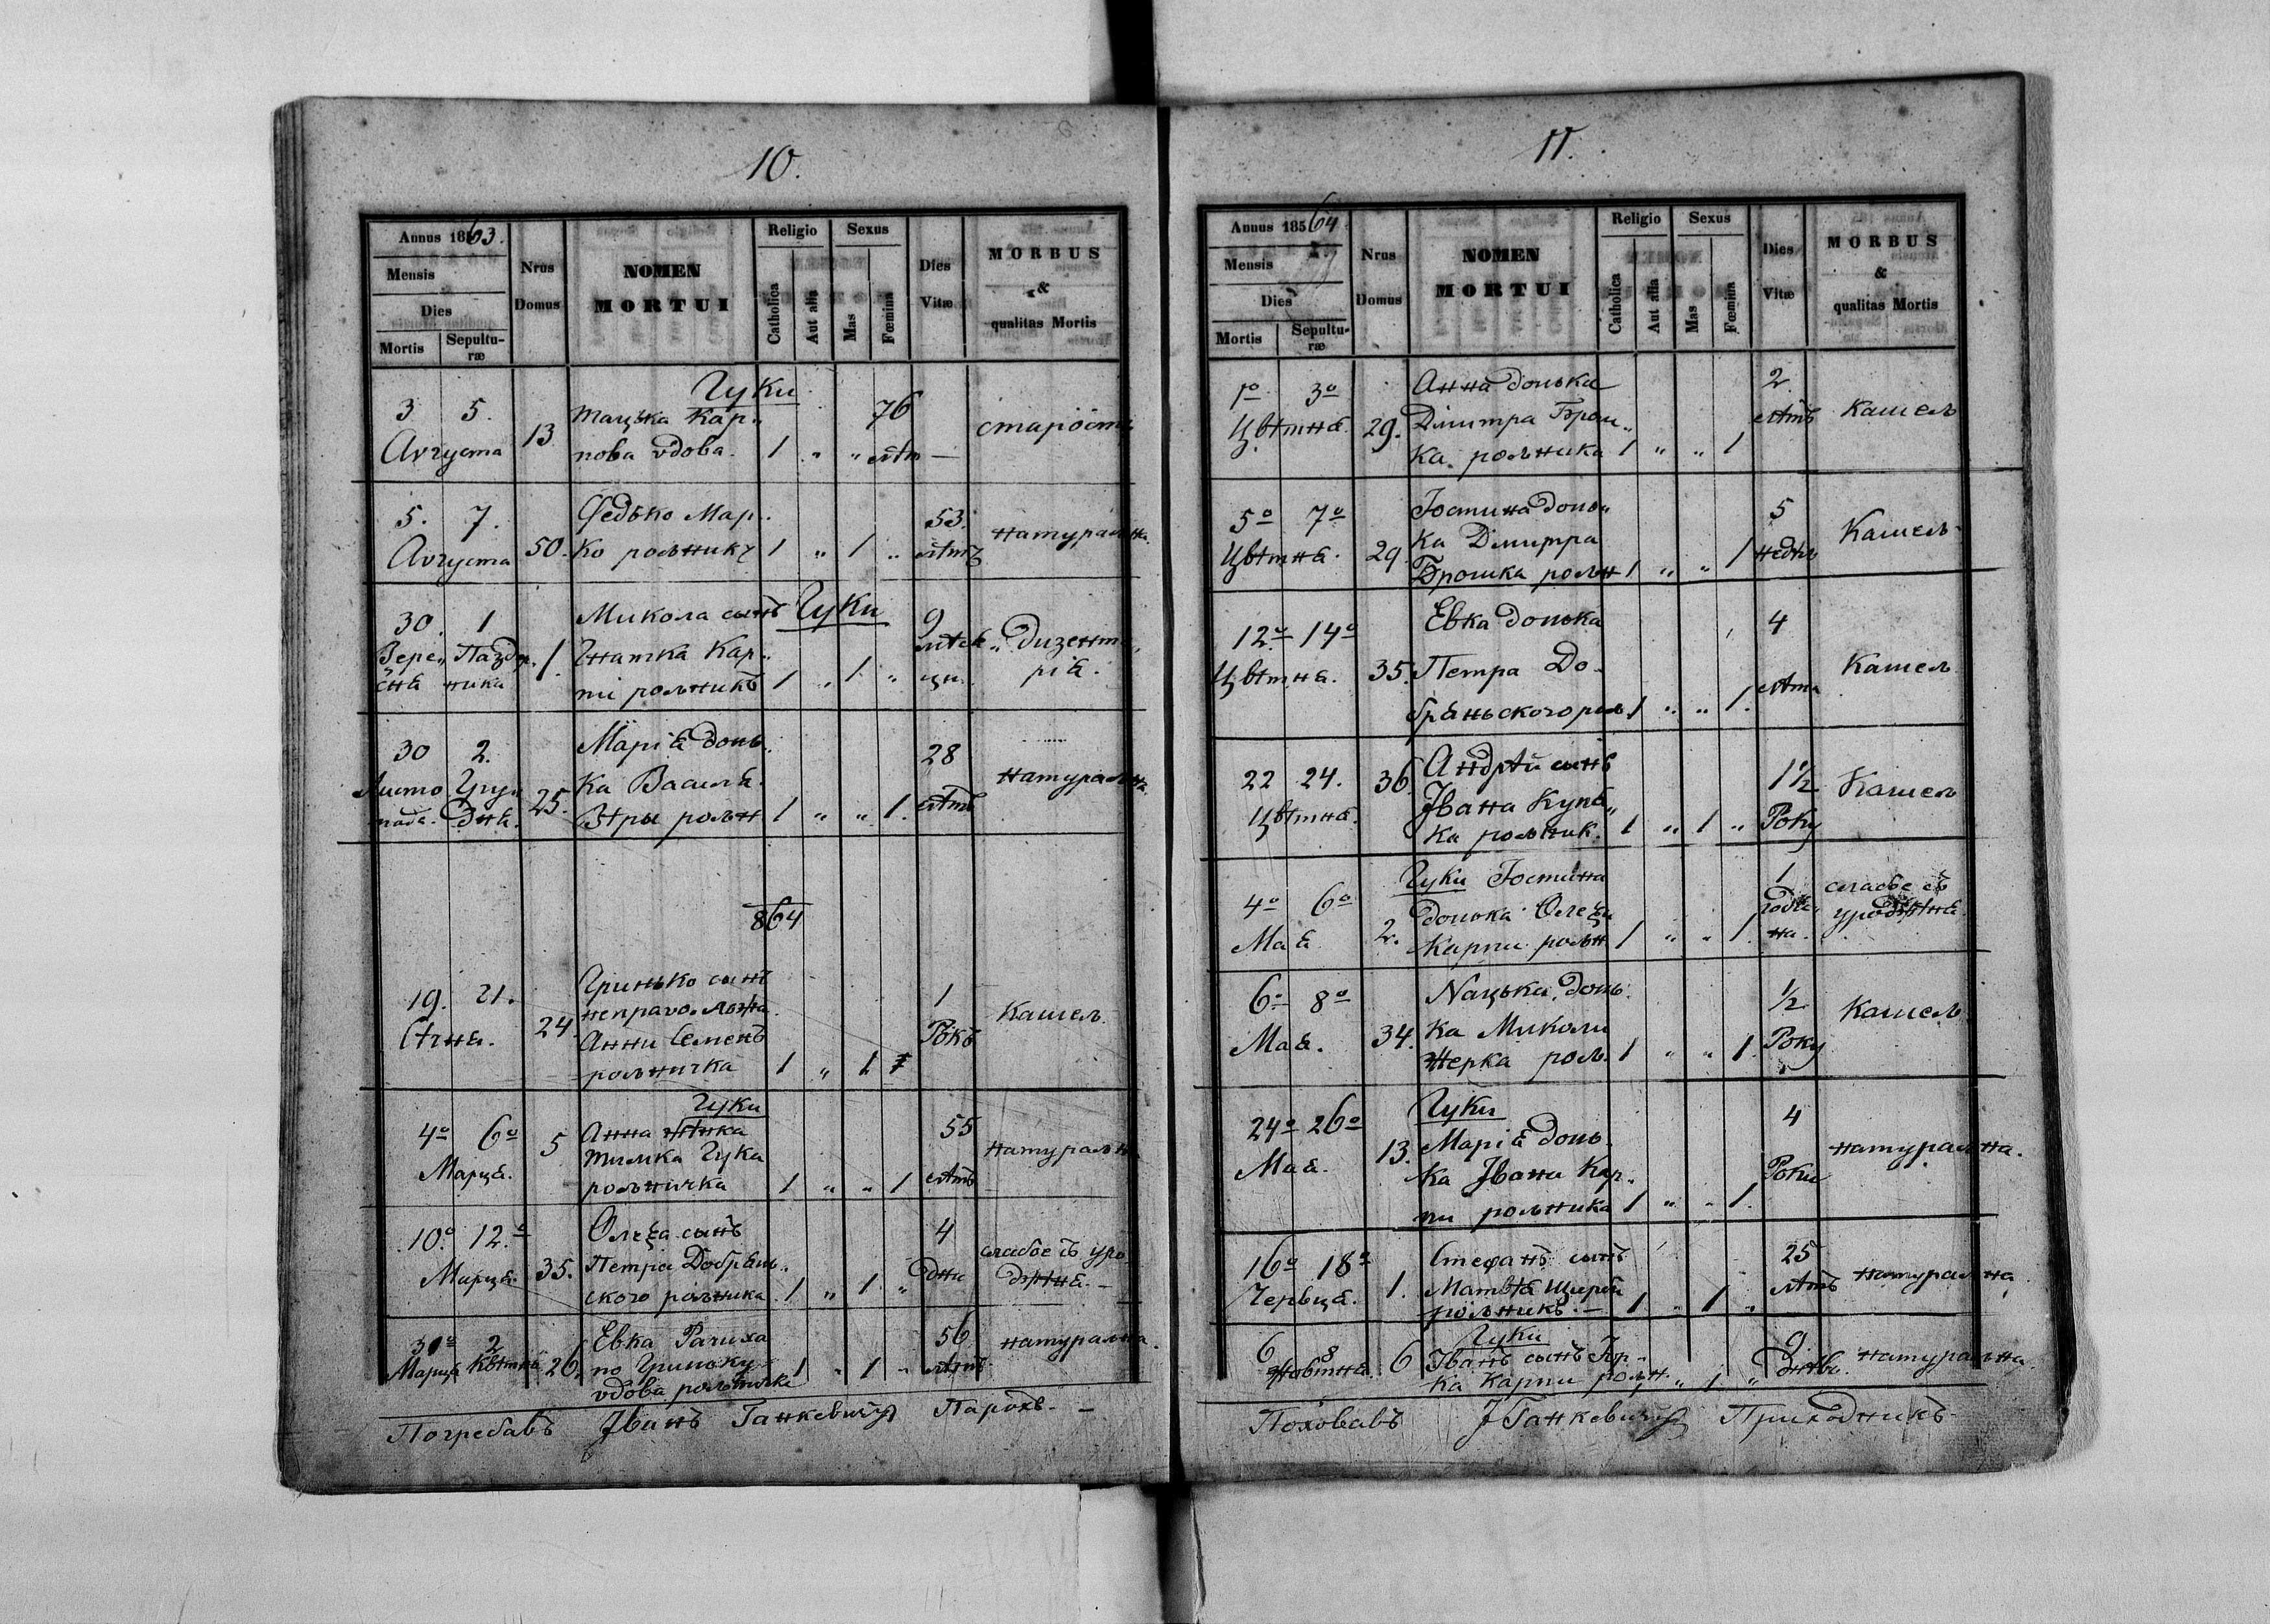 10.
Annus 1863.
Mensis
Dies
Mortis
Sepulturæ
Nrus Domus
NOMEN MORTUI
Religio
Catholica
Aut alia
Sexus
Mas
Fœmina
Dies Vitæ
MORBUS & qualitas Mortis
Гуки
3 5. Августа 13
Мацька Кар„
пова вдова. 1 „ „ 76 лѣт —
старо́сть
5. 7. Августа 50.
Федько Мар„
ко рольникъ 1 „ 1 „ 53. лѣтъ
натуральна.
30. 1
Вере„ Пазде.
сня ника 1.
Микола сынъ Гуки
Гнатка Кар„
пі рольникъ 1 „ 1 „
9 мѣся„ ци.
дизенте„
рія.
30 2.
Листо Гру„
пада. дня. 25.
Марія донь„
ка Василя
Вѣры рольн 1 „ „ 1.
28 лѣтъ
натуральна.
864
19. 21.
Сѣчня. 24.
Гринько сынъ
неправо. ложа
Анни Семенъ
рольничка 1 „ 1.
1 Рокъ
Кашель.
Гуки
4º 6º Марця. 5
Анна жѣнка
Тимка Гука
рольничка 1 „ „ 1
55 лѣтъ
натуральна
10º. 12.º
Марця. 35.
Олеѯа сынъ
Петра Добрянь„
ского рольника. 1 „ 1. „
4 дни
слабое съ уро„
дженя. —
30º 2
Марця Квѣтня 26.
Евка Рачиха
по Гриньку
вдова рольничка 1 „ 1 „
56 лѣтъ
натуральна.
Погребавъ Іванъ Ганкевичъ Парохъ. —
11.
Annus 18564
Mensis
Dies
Mortis
Sepulturæ
Nrus Domus
NOMEN MORTUI
Religio
Catholica
Aut alia
Sexus
Mas
Fœmina
Dies Vitæ
MORBUS & qualitas Mortis
1º 3º
Цвѣтня. 29.
Анна донька
Дмитра Брош„
ка. рольника 1 „ „ 1
2 лѣтъ
Кашель
5º 7º
Цвѣтня. 29
Юстина донь„
ка Дмитра
Брошка рольн 1 „ „ 1
5 недѣль
Кашель
12º 14º
Цвѣтня. 35.
Евка донька
Петра До„
бряньского роль. 1 „ „ 1.
4 лѣта
Кашель
22 24.
Цвѣтня. 36.
Андрѣй сынъ
Івана Купя„
ка рольник. 1 „ 1 „
1½ Року
Кашель
4º 6º
Мая 2.
Гуки Юстина
донька Олеѯы
Карпи рольн 1 „ „ 1.
1 годи„ на.
слабое съ
уродженя.
6º 8º
Мая. 34.
Нацька донь„
ка Миколи
Жерка роль. 1 „ „ 1.
½ Року
Кашель
24º 26º
Мая. 13.
Гуки
Марія донь„
ка Івана Кар„
пи рольника 1 „ „ 1.
4 Роки
натуральна.
16º 18º
Червця. 1.
Стефанъ сынъ
Матвѣя Щирби
рольникъ. — 1 „ 1 „
25 лѣтъ
натуральна
6 8
Жовтня. 6
Гуки
Іванъ сынъ Юр„
ка Карпи рольн. „ 1 „
9 днѣвъ.
натуральна.
Поховавъ І Ганкевичъ Приходникъ.